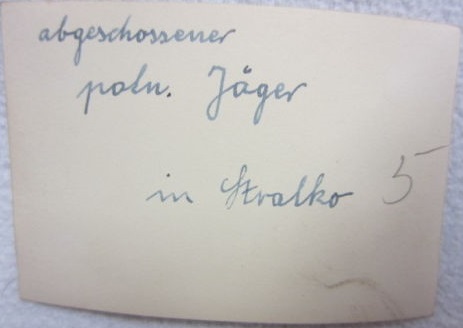 abgeschossener
poln. Jäger
in Stralko 5